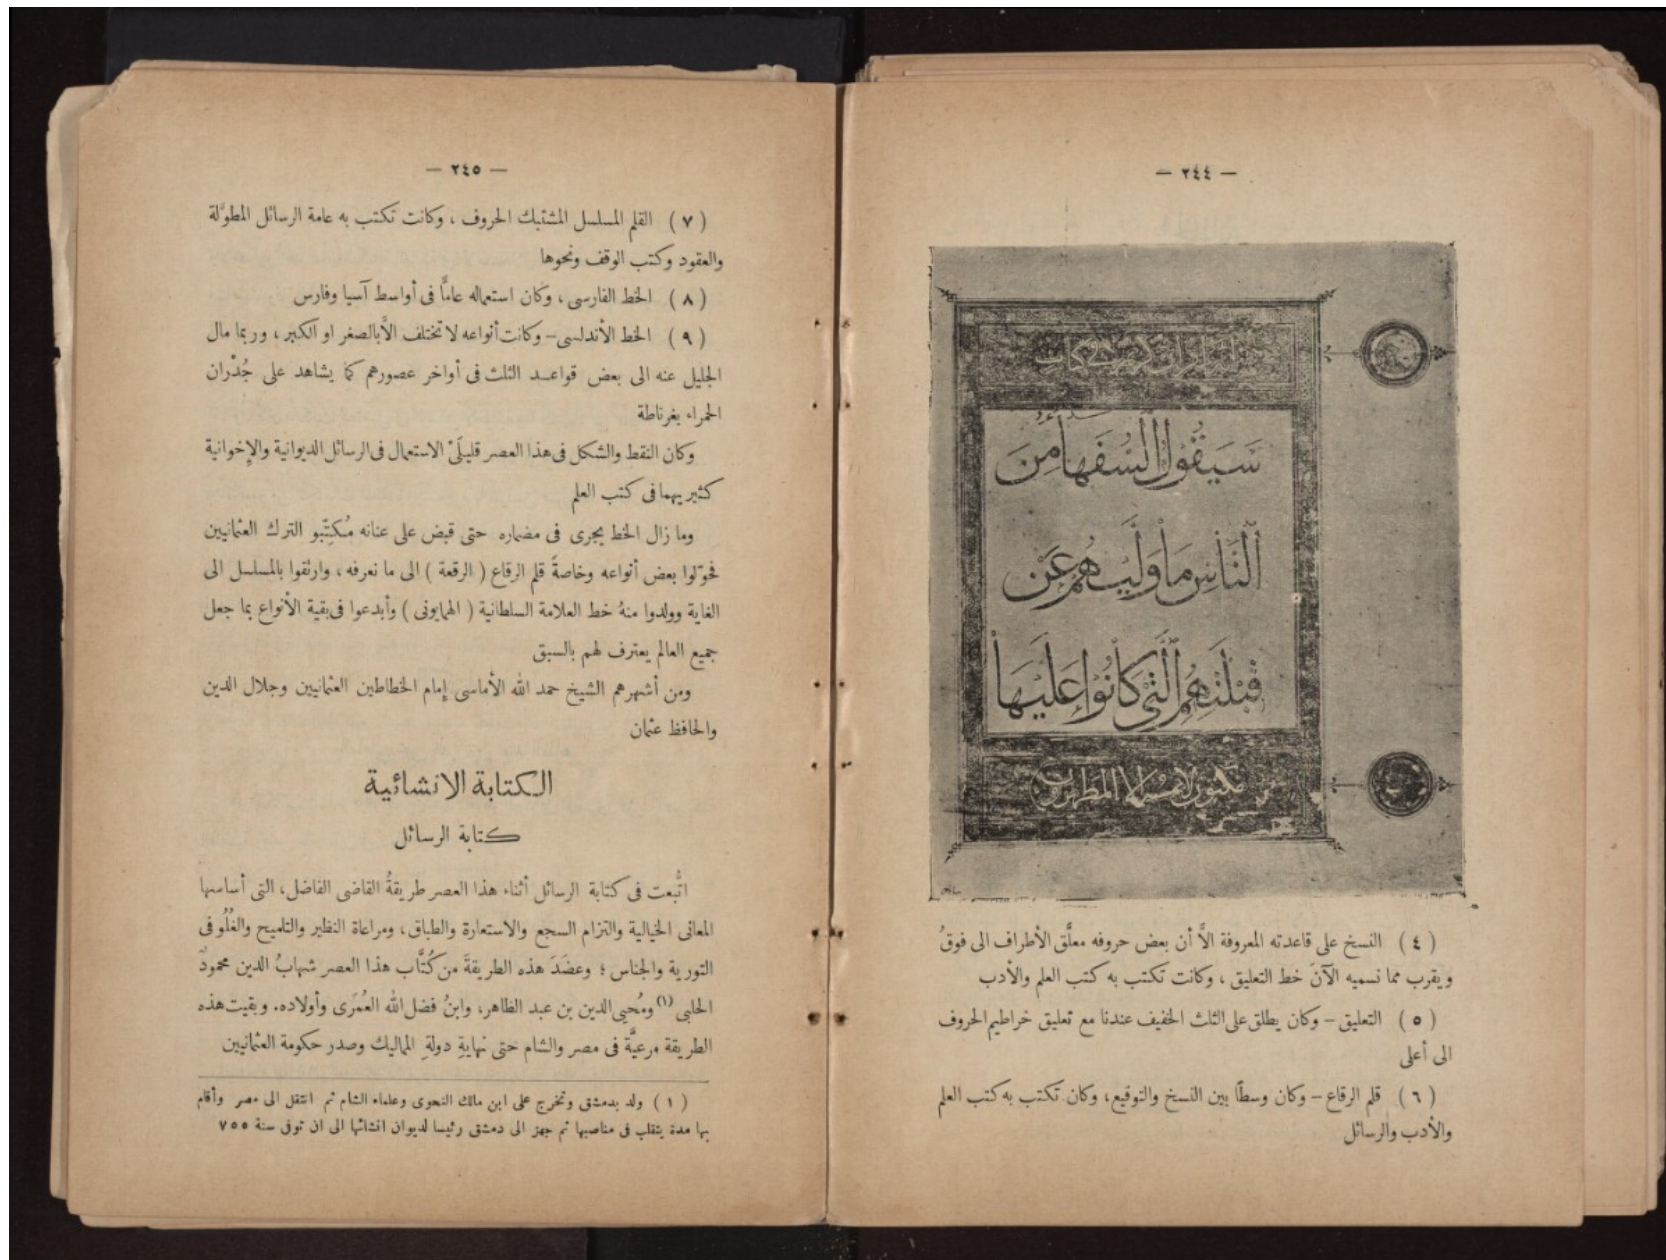 — ٢٤٤ —
سَيَقُولُ السُّفَهَاءُ مِنَ
النَّاسِ مَا وَلَّيٰهُمْ عَن
قِبْلَتِهِمُ الَّتِي كَانُوا عَلَيْهَا
لا يمسه الا المطهرون
( ٤ ) النسخ على قاعدته المعروفة الاَّ أن بعض حروفه معلَّق الأطراف الى فوقُ
ويقرب مما نسميه الآنَ خط التعليق ، وكانت تكتب به كتب العلم والأدب
( ٥ ) التعليق – وكان يطلق على الثلث الخفيف عندنا مع تعليق خراطيم الحروف
الى أعلى
( ٦ ) قلم الرقاع – وكان وسطًا بين النسخ والتوقيع، وكان تكتب به كتب العلم
والأدب والرسائل
— ٢٤٥ —
( ٧ ) القلم المسلسل المشتبك الحروف ، وكانت تكتب به عامة الرسائل المطوَّلة
والعقود وكتب الوقف ونحوها
( ٨ ) الخط الفارسى ، وكان استعماله عامًّا فى أواسط آسيا وفارس
( ٩ ) الخط الأندلسى – وكانت أنواعه لا تختلف الاَّ بالصغر او الكبر ، وربما مال
الجليل عنه الى بعض قواعد الثلث فى أواخر عصورهم كما يشاهد على جُدْران
الحمراء بغرناطة
وكان النقط والشكل فى هذا العصر قليلَىْ الاستعمال فى الرسائل الديوانية والإخوانية
كثيريهما فى كتب العلم
وما زال الخط يجرى فى مضماره حتى قبض على عنانه مُكتِّبو الترك العثمانيين
فحوّلوا بعض أنواعه وخاصةً قلم الرقاع ( الرقعة ) الى ما نعرفه ، وارتقوا بالمسلسل الى
الغاية وولدوا منهُ خط العلامة السلطانية ( الهمايونى ) وأبدعوا فى بقية الأنواع بما جعل
جميع العالم يعترف لهم بالسبق
ومن أشهرهم الشيخ حمد الله الأماسى إمام الخطاطين العثمانيين وجلال الدين
والحافظ عثمان
الكتابة الانشائية
كتابة الرسائل
اتُّبعت فى كتابة الرسائل أثناء هذا العصر طريقةُ القاضى الفاضل، التى أساسها
المعانى الخيالية والتزام السجع والاستعارة والطباق، ومراعاة النظير والتلميح والغُلُو فى
التورية والجناس ؛ وعضَدَ هذه الطريقةَ من كُتَّاب هذا العصر شهابُ الدين محمودٌ
الحلبى (١) ومُحيى الدين بن عبد الظاهر، وابنُ فضل الله العُمَرى وأولاده. وبقيت هذه
الطريقة مرعيَّةً فى مصر والشام حتى نهايةِ دولةِ المماليك وصدر حكومة العثمانيين
( ١ ) ولد بدمشق وتخرج على ابن مالك النحوى وعلماء الشام ثم انتقل الى مصر وأقام
بها مدة يتقلب فى مناصبها ثم جهز الى دمشق رئيسا لديوان انشائها الى ان توفى سنة ٧٥٥